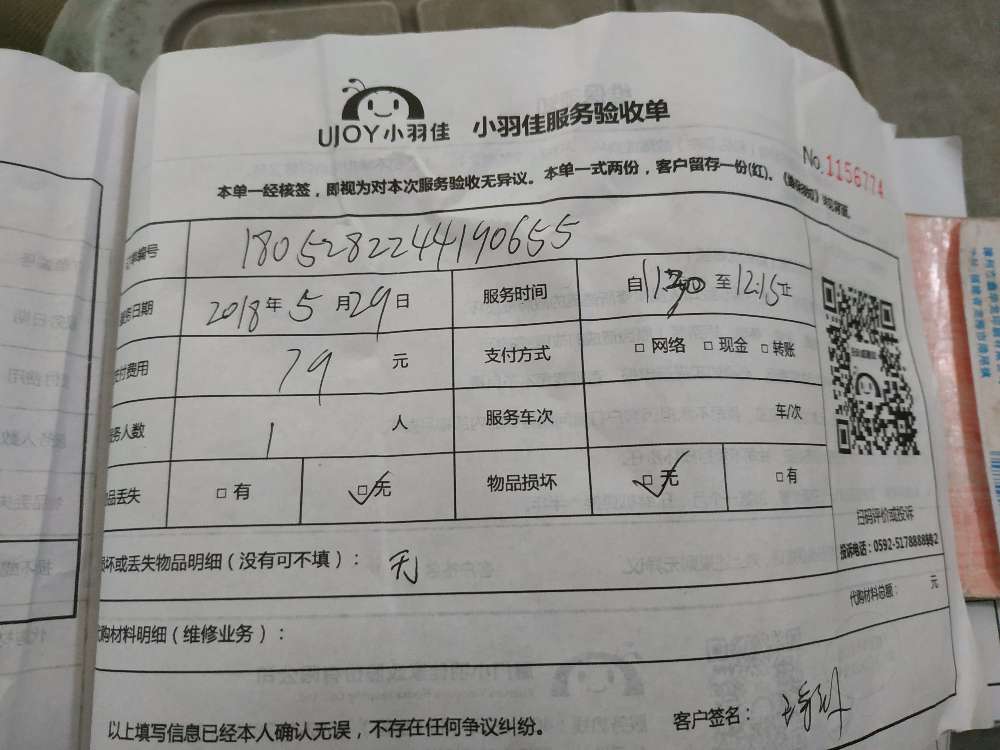 UJOY小羽佳 小羽佳服务验收单
No. 1156774
本单一经核签，即视为对本次服务验收无异议。本单一式两份，客户留存一份(红)。
单编号 1805282244190655
务日期 2018年5月29日 服务时间 自11:30至12:15止
付费用 79 元 支付方式 □ 网络 □ 现金 □ 转账
务人数 1 人 服务车次 车/次
品丢失 □ 有 □ 无 物品损坏 □ 无 □ 有
扫码评价或投诉
投诉电话：0592-5178888转2
坏或丢失物品明细（没有可不填）： 无
代购材料总额： 元
代购材料明细（维修业务）：
以上填写信息已经本人确认无误，不存在任何争议纠纷。 客户签名：